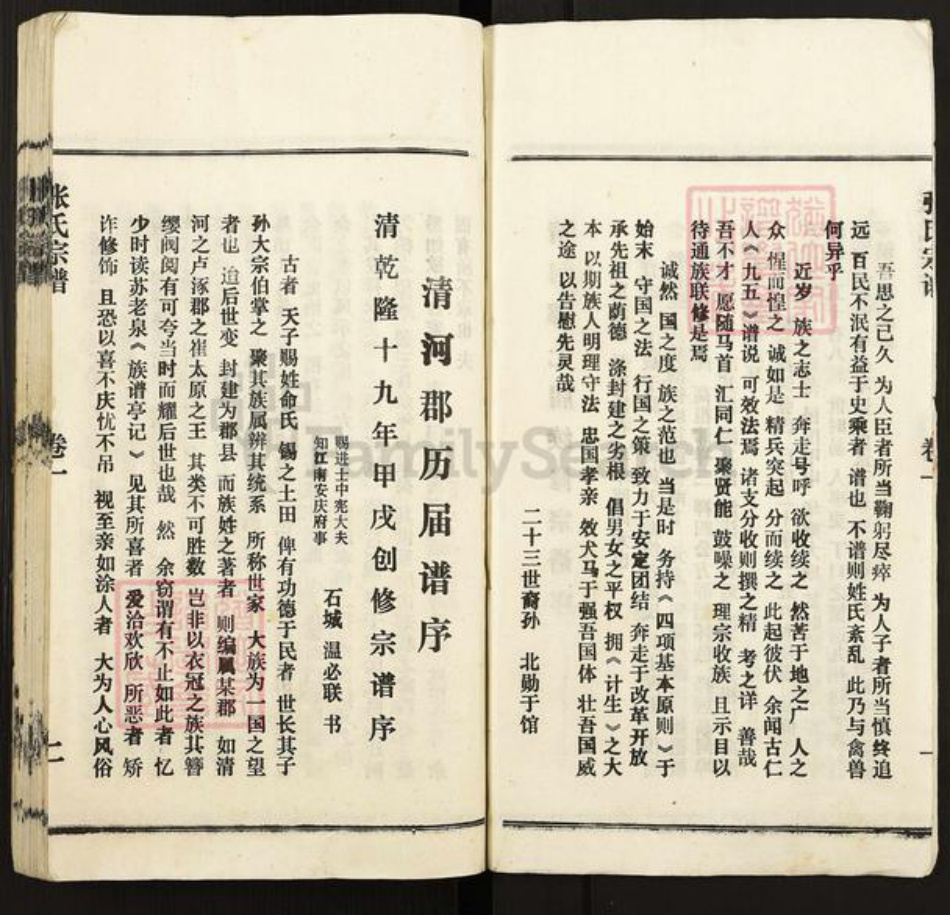 张氏宗谱
卷一
吾思之己久 为人臣者所当鞠躬尽瘁 为人子者所当慎终追
远 百民不泯有益于史乘者 谱也 不谱则姓氏紊乱 此乃与禽兽
何异乎
近岁 族之志士 奔走号呼 欲收续之 然苦于地之广 人之
众 惺而惶之 诚如是 精兵突起 分而续之 此起彼伏 余闻古仁
人《九五》谱说 可效法焉 诸支分收则撰之精 考之详 善哉
吾不才 愿随马首 汇同仁 聚贤能 鼓噪之 理宗收族 且示目以
待通族联修是焉
诚然 国之度 族之范也 当是时 务持《四项基本原则》于
始末 守国之法 行国之策 致力于安定团结 奔走于改革开放
承先祖之荫德 涤封建之劣根 倡男女之平权 拥《计生》之大
本 以期族人明理守法 忠国孝亲 效犬马于强吾国体 壮吾国威
之途 以告慰先灵哉
二十三世裔孙 北勋于馆
清河郡历届谱序
清乾隆十九年甲戌创修宗谱序
赐进士中宪大夫
知江南安庆府事
石城 温必联 书
古者 天子赐姓命氏 锡之土田 俾有功德于民者 世长其子
孙大宗伯掌之 聚其族属辨其统系 所称世家 大族为一国之望
者也 迨后世变 封建为郡县 而族姓之著者 则编属某郡 如清
河之卢涿郡之崔太原之王 其类不可胜数 岂非以衣冠之族其簪
缨阀阅有可夸当时而耀后世也哉 然 余窃谓有不止如此者 忆
少时读苏老泉《族谱亭记》见其所喜者 爱洽欢欣 所恶者 矫
诈修饰 且恐以喜不庆忧不吊 视至亲如涂人者 大为人心风俗
张氏宗谱
卷一
二
FamilySearch